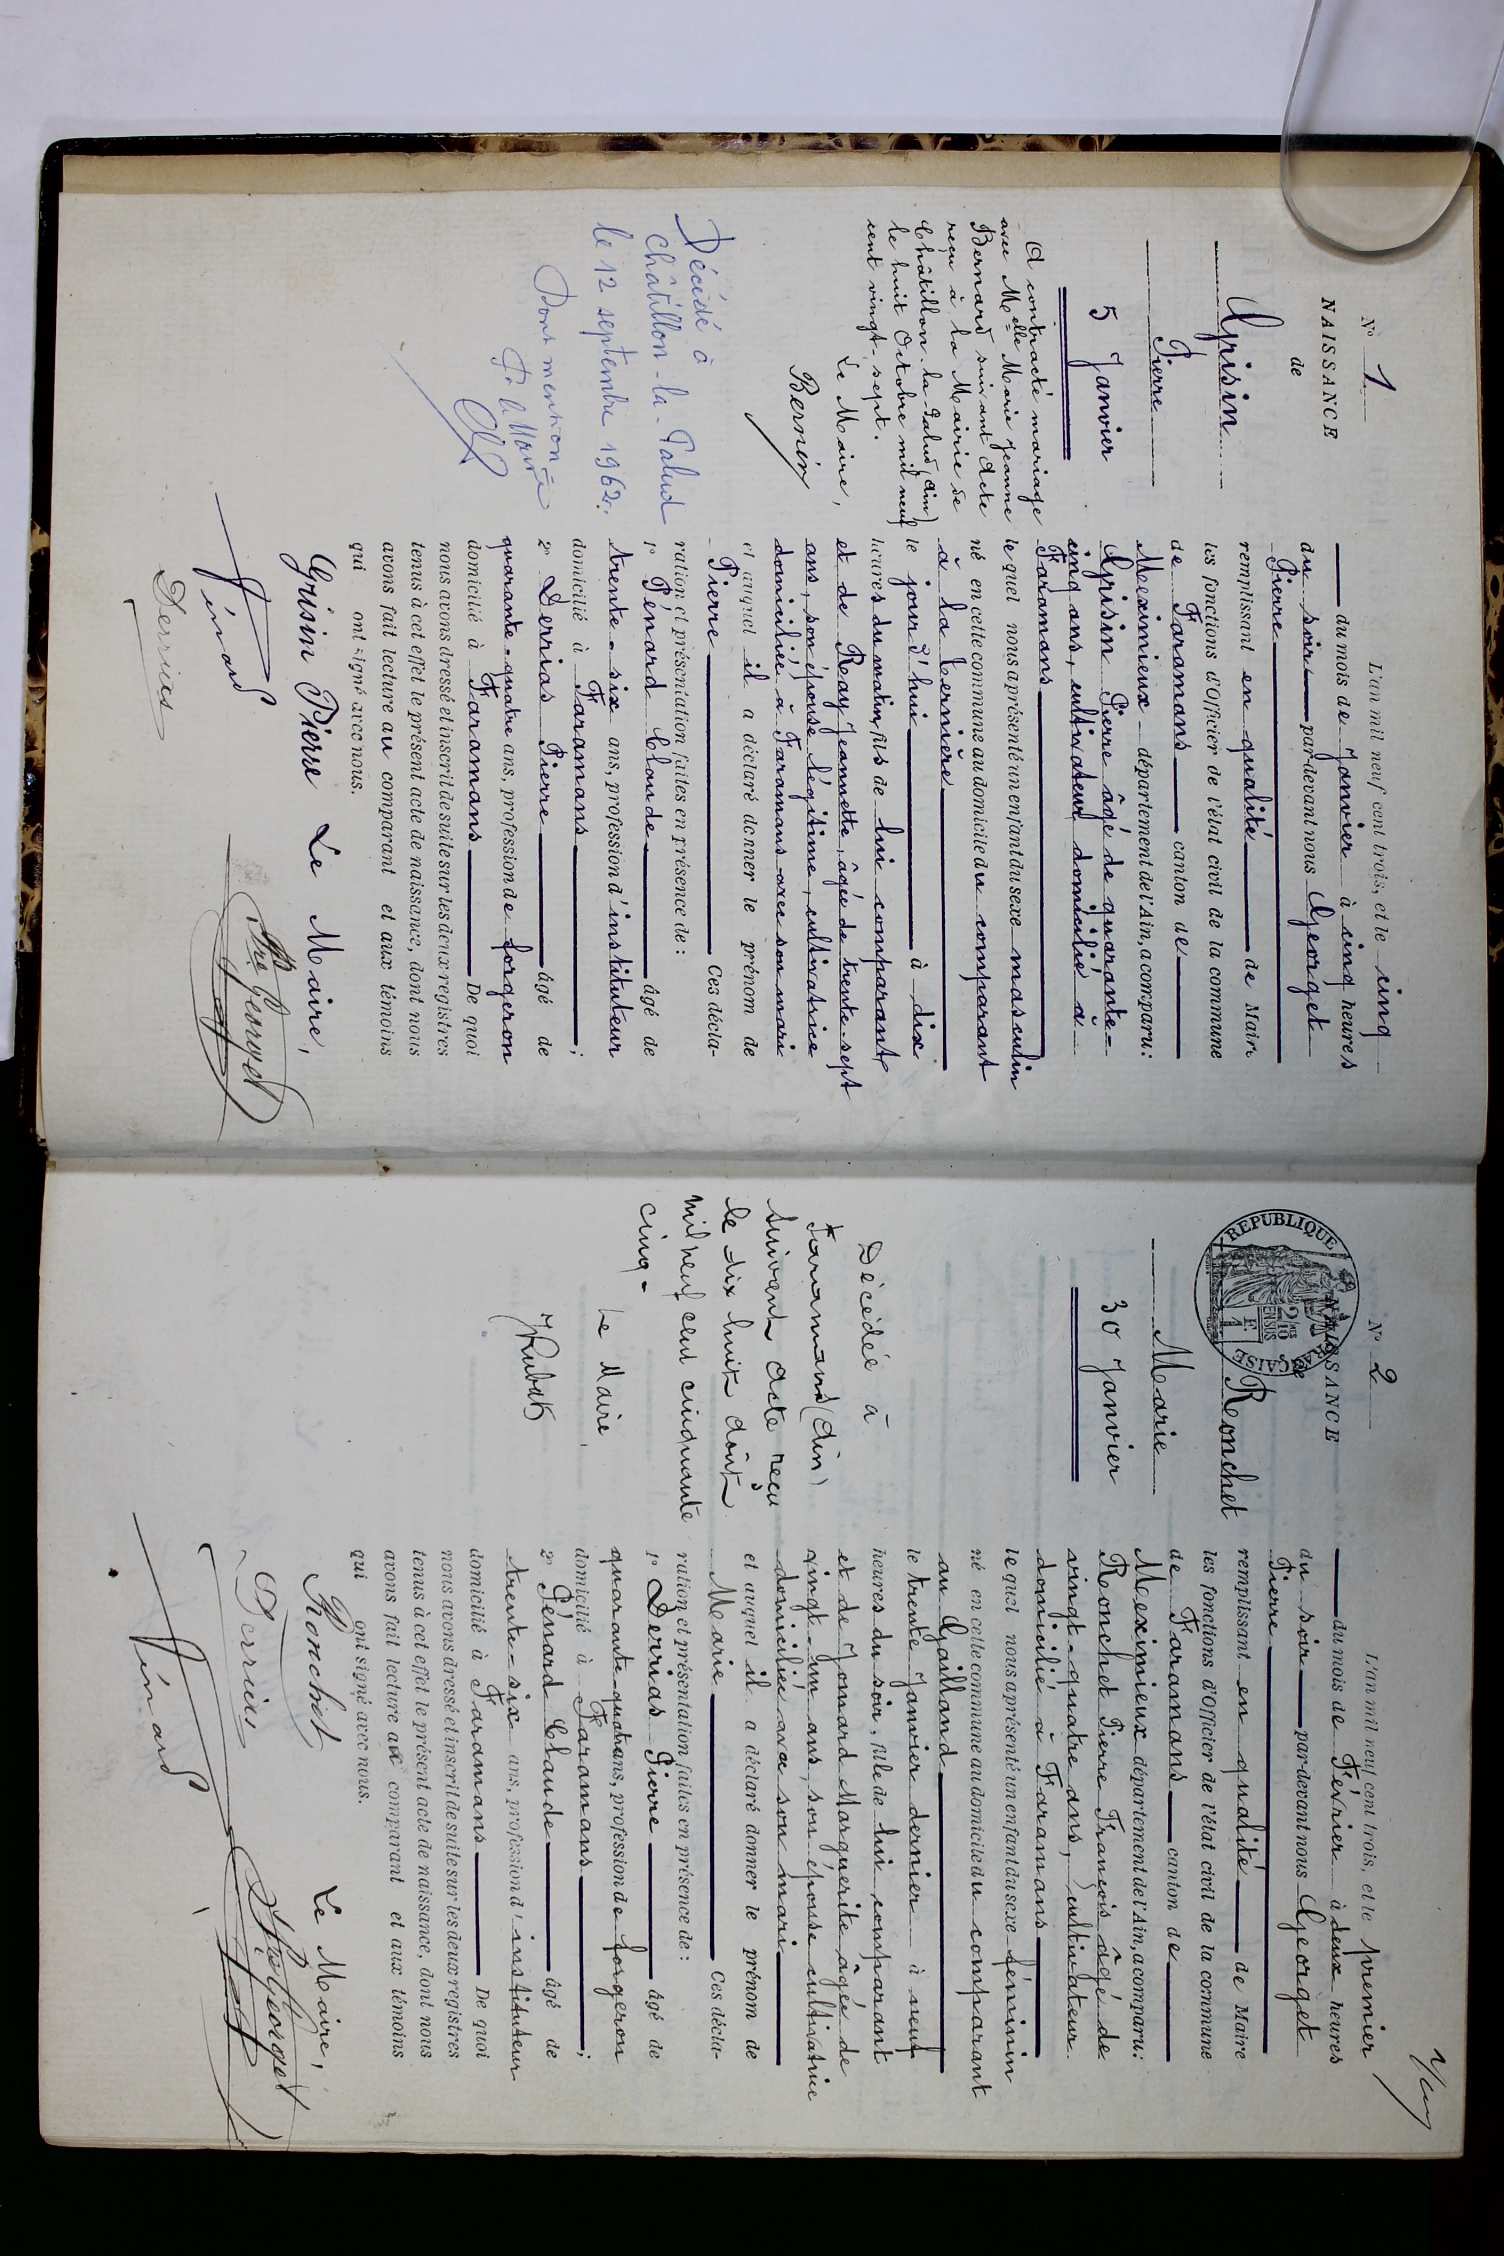 N° 1
NAISSANCE
de
Grisin
Pierre
5 Janvier
A contracté mariage
avec Melle Marie Jeanne
Bernard suivant Acte
reçu à la Mairie de
Châtillon-la-Palud (Ain)
le huit Octobre mil neuf
cent vingt-sept.
Le Maire,
Bernin
Décédé à
Châtillon-la-Palud
le 12 septembre 1962.
Dont mention
L'an mil neuf cent trois, et le cinq
du mois de Janvier à cinq heures
du soir par-devant nous Georget
Pierre
remplissant en qualité de Maire
les fonctions d'Officier de l'état civil de la commune
de Faramans canton de
Meximieux département de l'Ain, a comparu:
Grisin Pierre âgé de quarante-
cinq ans, cultivateur domicilié à
Faramans
lequel nous a présenté un enfant du sexe masculin
né en cette commune au domicile du comparant
à la Bernière
le jour d'hui à dix
heures du matin, fils de lui comparant
et de Ray Jeannette, âgée de trente-sept
ans, son épouse légitime, cultivatrice
domiciliée à Faramans avec son mari
et auquel il a déclaré donner le prénom de
Pierre Ces décla-
ration et présentation faites en présence de:
1° Pénard Claude âgé de
trente-six ans, profession d'instituteur
domicilié à Faramans;
2° Derrias Pierre âgé de
quarante-quatre ans, profession de forgeron
domicilié à Faramans De quoi
nous avons dressé et inscrit de suite sur les deux registres
tenus à cet effet le présent acte de naissance, dont nous
avons fait lecture au comparant et aux témoins
qui ont signé avec nous.
Grisin Pierre Le Maire,
Pénard
Pre Georget
Derrias
N° 2
NAISSANCE
de
REPUBLIQUE FRANÇAISE
Ronchet
Marie
30 Janvier
Décédée à
Faramans (Ain)
suivant acte reçu
le dix huit août
mil neuf cent cinquante
cinq.
Le Maire,
L'an mil neuf cent trois, et le premier
du mois de Février à deux heures
du soir par-devant nous Georget
Pierre
remplissant en qualité de Maire
les fonctions d'Officier de l'état civil de la commune
de Faramans canton de
Meximieux département de l'Ain, a comparu:
Ronchet Pierre François âgé de
vingt-quatre ans, cultivateur
domicilié à Faramans
lequel nous a présenté un enfant du sexe féminin
né en cette commune au domicile du comparant
au Gailland
le trente Janvier dernier à neuf
heures du soir, fille de lui comparant
et de Jomard Marguerite âgée de
vingt-un ans, son épouse cultivatrice
domiciliée avec son mari
et auquel il a déclaré donner le prénom de
Marie Ces décla-
ration et présentation faites en présence de:
1° Derrias Pierre âgé de
quarante-quatre ans, profession de forgeron
domicilié à Faramans;
2° Pénard Claude âgé de
trente-six ans, profession d'instituteur
domicilié à Faramans De quoi
nous avons dressé et inscrit de suite sur les deux registres
tenus à cet effet le présent acte de naissance, dont nous
avons fait lecture au comparant et aux témoins
qui ont signé avec nous.
Ronchet Le Maire,
Derrias Pre Georget
Pénard